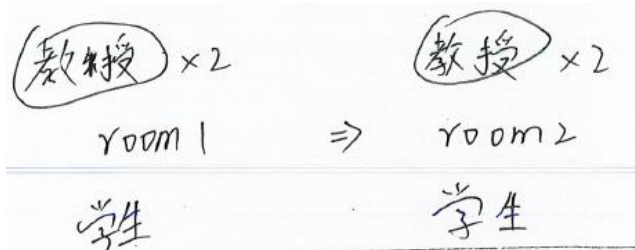 教授 ×2 教授 ×2
room 1 ⇒ room 2
学生 学生